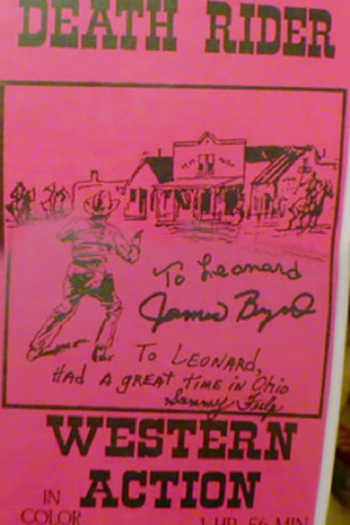 DEATH RIDER
To Leonard
James Byrd
To LEONARD,
HAD A great time in Ohio
Sammy
WESTERN
ACTION
IN
COLOR
1 HR. 56 MIN.